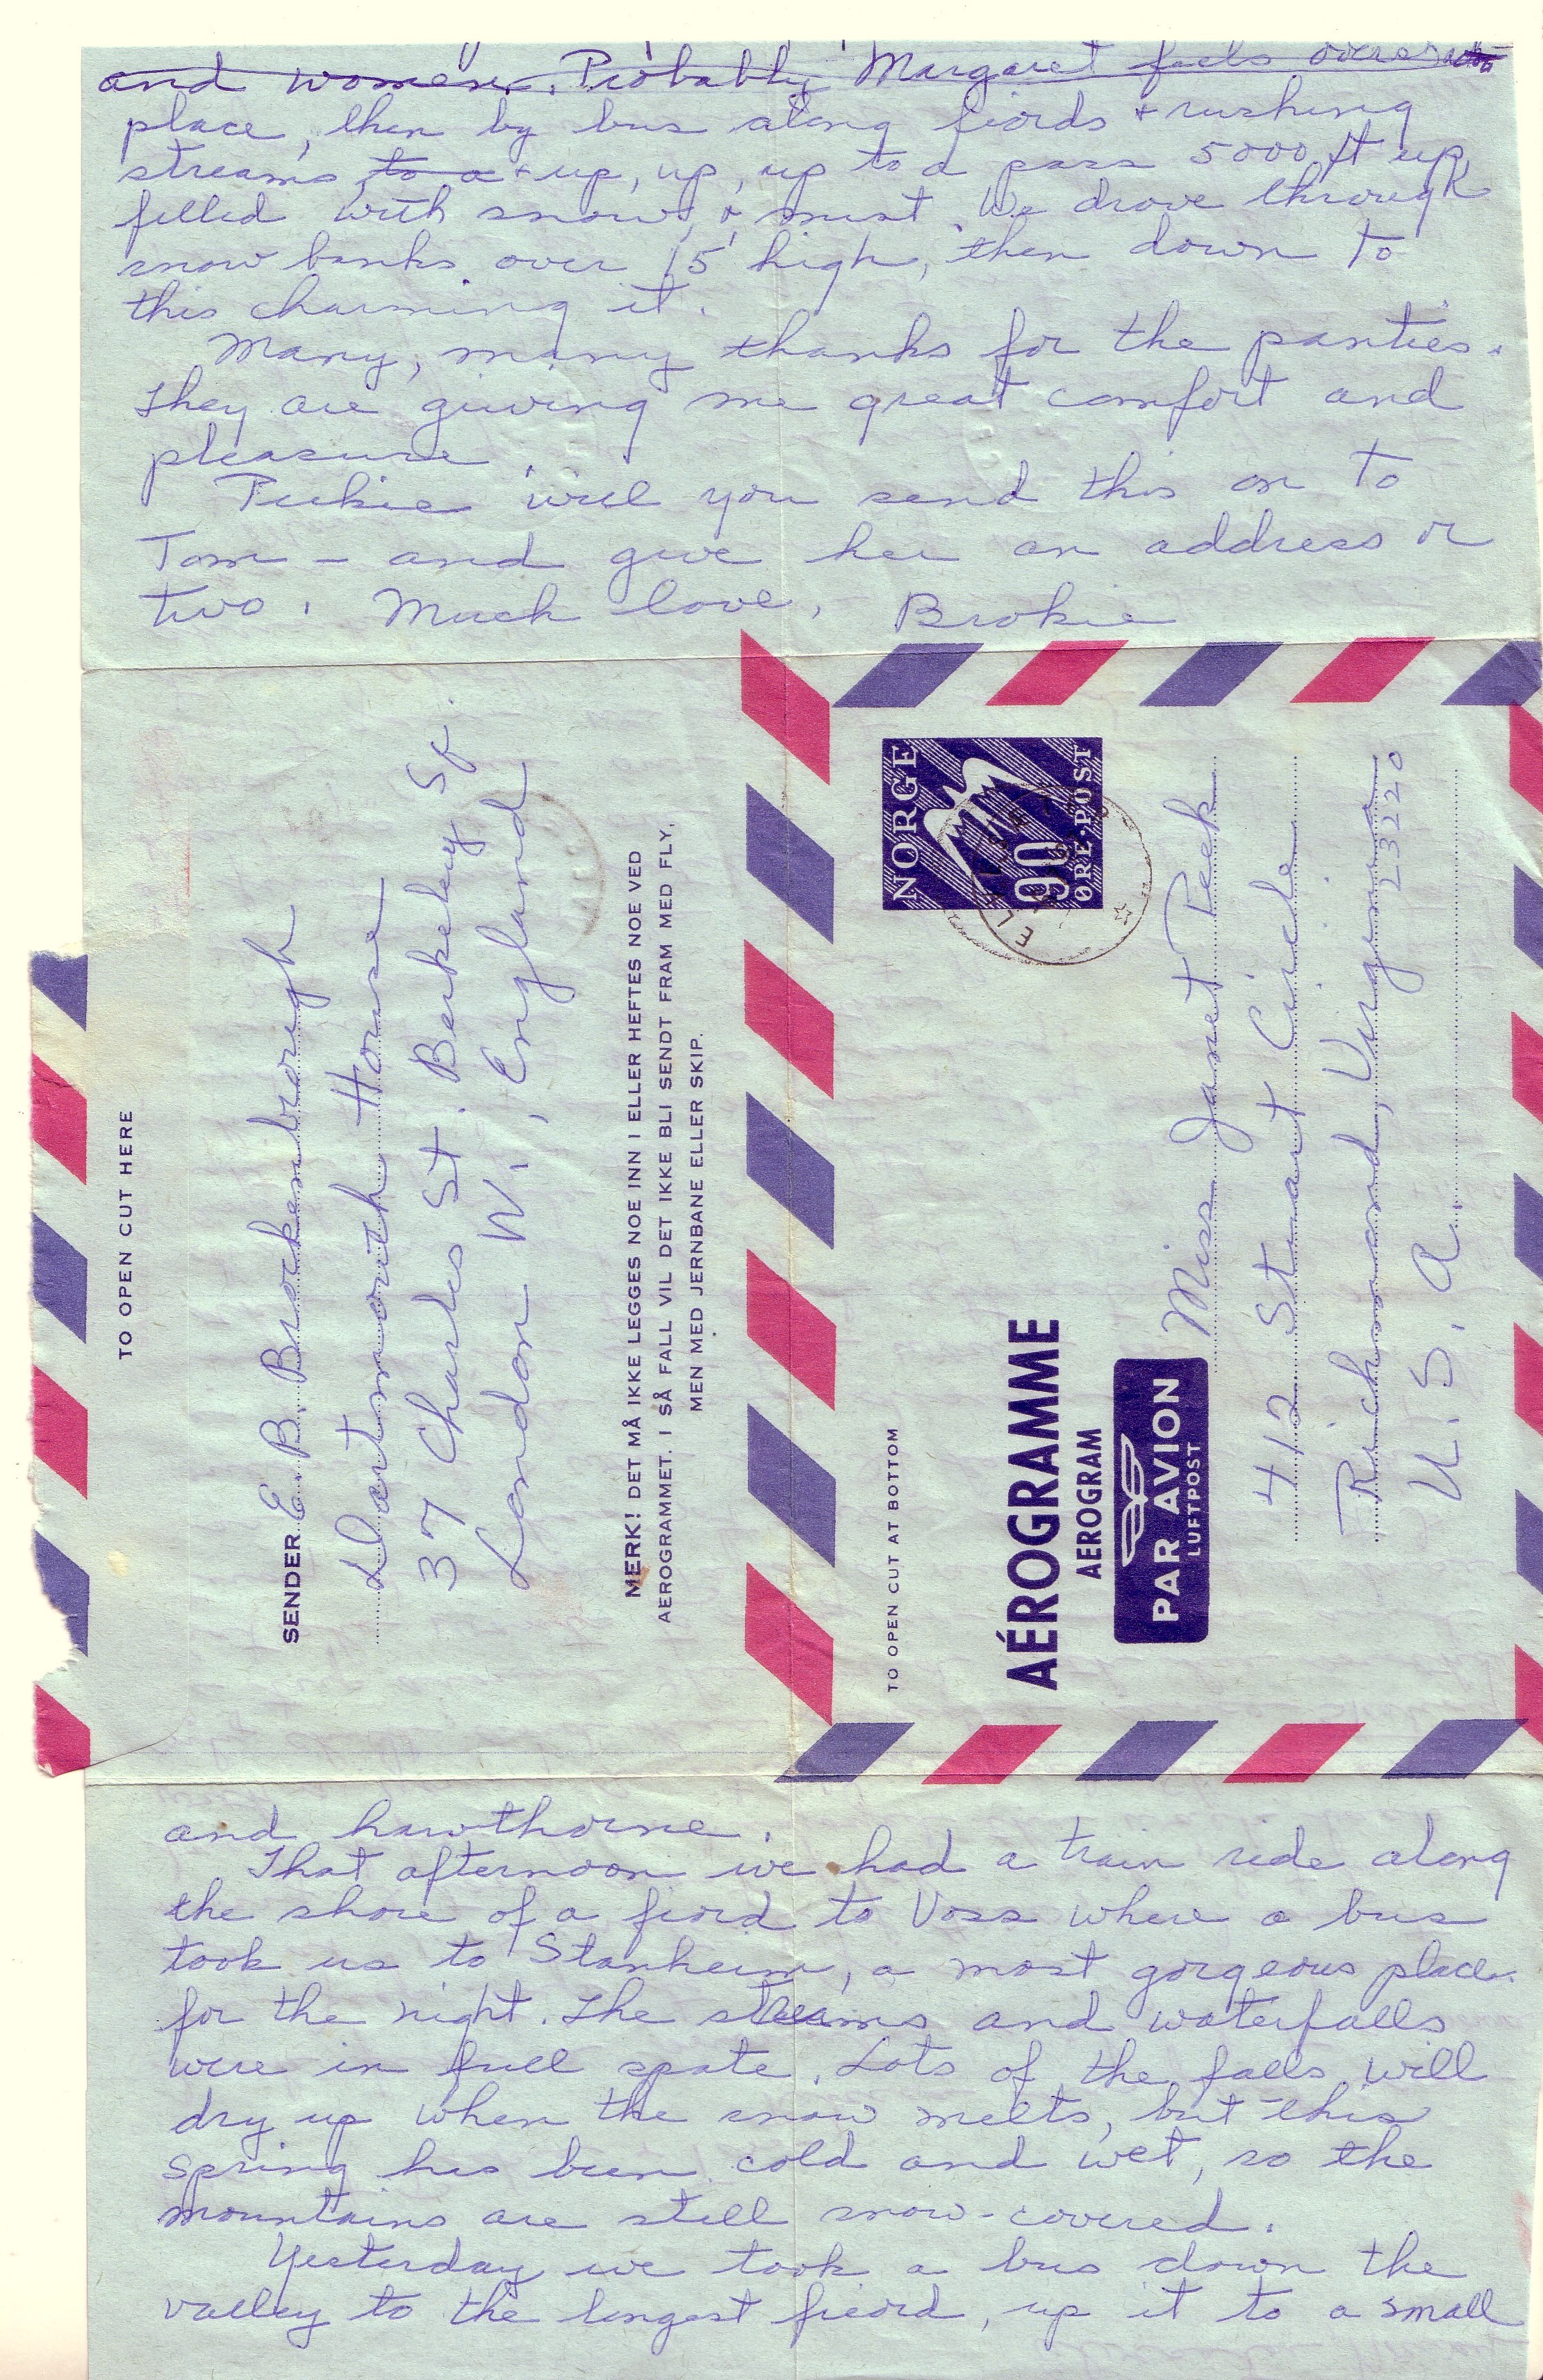 and women. Probably Margaret feels
place, then by bus along fiords + rushing
streams, to a + up, up, up to a pass 5000 ft up,
filled with snow, & mist. We drove through
snow banks over 15' high, then down to
this charming it.
Many, many thanks for the panties.
They are giving me great comfort and
pleasure.
Peekie will you send this on to
Tom – and give her an address or
two. Much love, Brokie
TO OPEN CUT HERE
SENDER E. B. Brockenbrough
Dartmouth House
37 Charles St. Berkeley Sq.
London W1, England
MERK! DET MÅ IKKE LEGGES NOE INN I ELLER HEFTES NOE VED
AEROGRAMMET. I SÅ FALL VIL DET IKKE BLI SENDT FRAM MED FLY,
MEN MED JERNBANE ELLER SKIP.
TO OPEN CUT AT BOTTOM
NORGE
90
ØRE·POST
AÉROGRAMME
AEROGRAM
PAR AVION
LUFTPOST
Miss Janet Peek
412 Stuart Circle
Richmond, Virginia
23220
U. S. A.
and hawthorne.
That afternoon we had a train ride along
the shore of a fiord to Voss where a bus
took us to Stanheim, a most gorgeous place
for the night. The streams and waterfalls
were in full spate. Lots of the falls will
dry up when the snow melts, but this
spring has been cold and wet, so the
mountains are still snow-covered.
Yesterday we took a bus down the
valley to the longest fieord, up it to a small